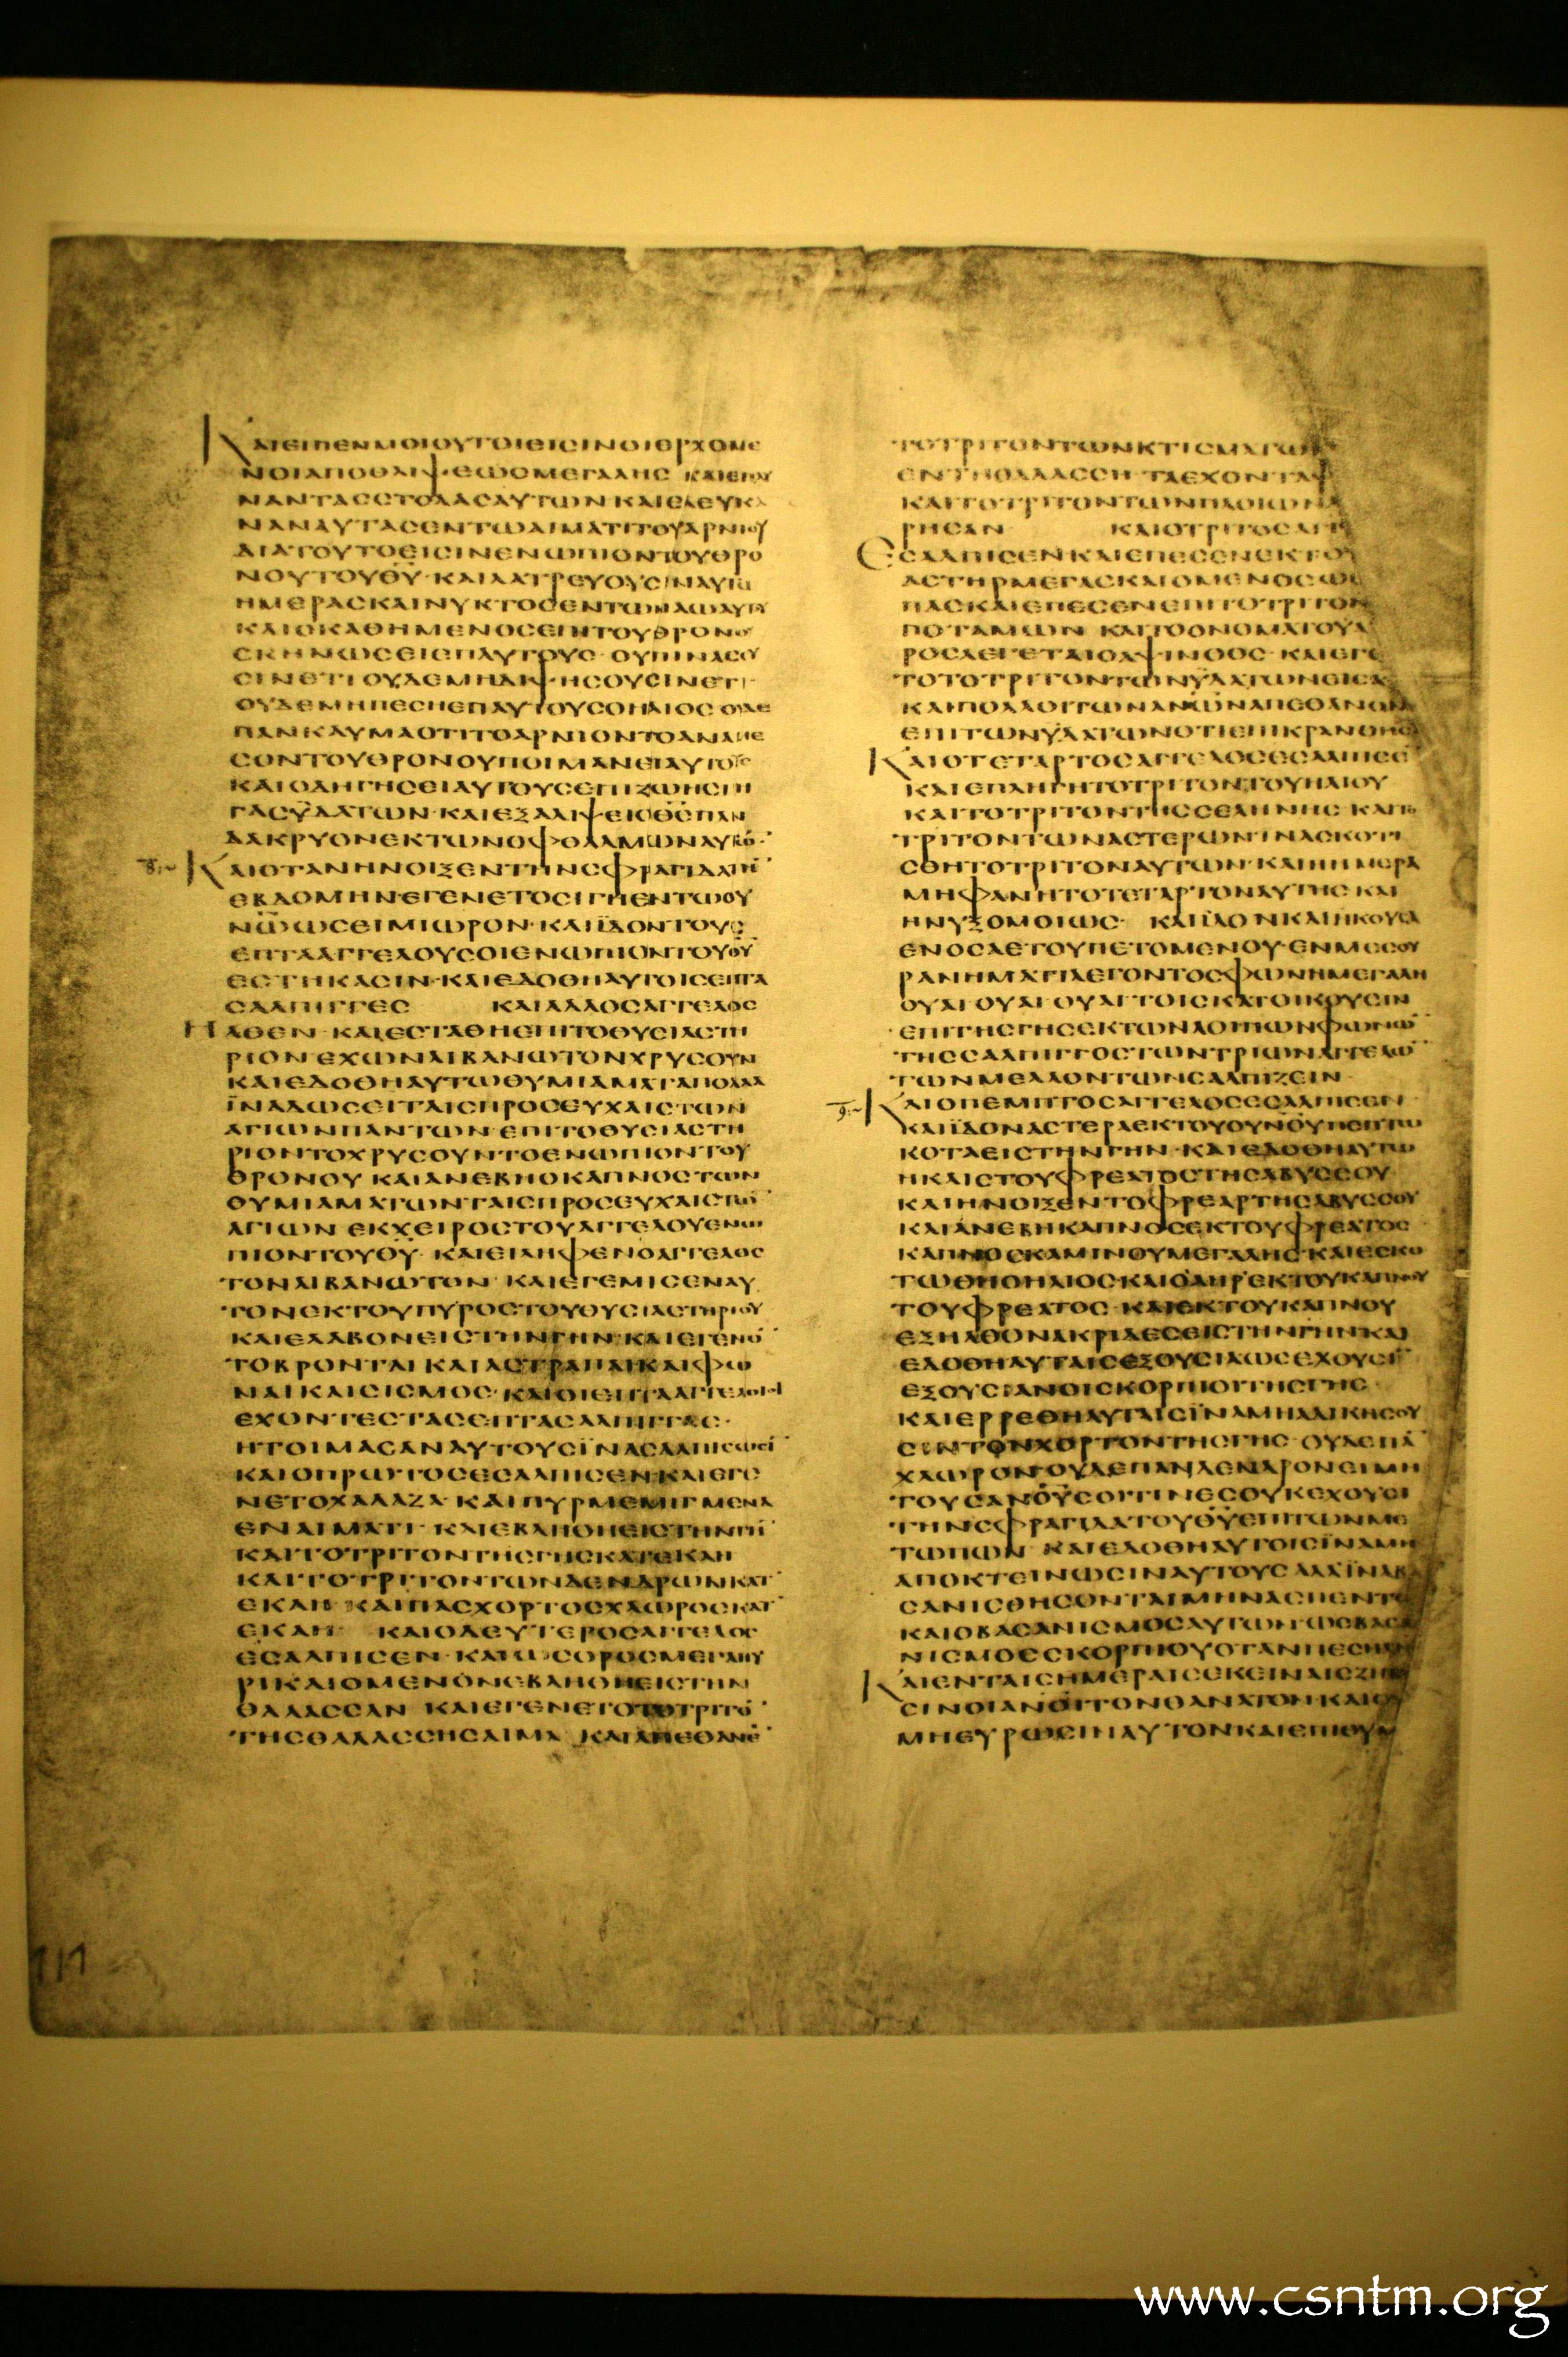 ΚΑΙΕΙΠΕΝΜΟΙΟΥΤΟΙΕΙΣΙΝΟΙΕΡΧΟΜΕ
ΝΟΙΑΠΟΘΛΙΨΕΩΣΜΕΓΑΛΗΣ ΚΑΙΕΠΛΥ
ΝΑΝΤΑΣΣΤΟΛΑΣΑΥΤΩΝΚΑΙΕΛΕΥΚΑ
ΝΑΝΑΥΤΑΣΕΝΤΩΑΙΜΑΤΙΤΟΥΑΡΝΙΟΥ
ΔΙΑΤΟΥΤΟΕΙΣΙΝΕΝΩΠΙΟΝΤΟΥΘΡΟ
ΝΟΥΤΟΥΘΥ·ΚΑΙΛΑΤΡΕΥΟΥΣΙΝΑΥΤΩ
ΗΜΕΡΑΣΚΑΙΝΥΚΤΟΣΕΝΤΩΝΑΩΑΥΤΟΥ
ΚΑΙΟΚΑΘΗΜΕΝΟΣΕΠΙΤΟΥΘΡΟΝΟΥ
ΣΚΗΝΩΣΕΙΕΠΑΥΤΟΥΣ·ΟΥΠΙΝΑΣΟΥ
ΣΙΝΕΤΙΟΥΔΕΜΗΔΙΨΗΣΟΥΣΙΝΕΤΙ·
ΟΥΔΕΜΗΠΕΣΗΕΠΑΥΤΟΥΣΟΗΛΙΟΣ ΟΥΔΕ
ΠΑΝΚΑΥΜΑΟΤΙΤΟΑΡΝΙΟΝΤΟΑΝΑΜΕ
ΣΟΝΤΟΥΘΡΟΝΟΥΠΟΙΜΑΝΕΙΑΥΤΟΥΣ
ΚΑΙΟΔΗΓΗΣΕΙΑΥΤΟΥΣΕΠΙΖΩΗΣΠΗ
ΓΑΣΥΔΑΤΩΝ·ΚΑΙΕΞΑΛΙΨΕΙΟΘΣΠΑΝ
ΔΑΚΡΥΟΝΕΚΤΩΝΟΦΘΑΛΜΩΝΑΥΤΩ̄·
ΚΑΙΟΤΑΝΗΝΟΙΞΕΝΤΗΝΣΦΡΑΓΙΔΑΤΗ̄
ΕΒΔΟΜΗΝ·ΕΓΕΝΕΤΟΣΙΓΗΕΝΤΩΟΥ
ΝΩΩΣΕΙΜΙΩΡΟΝ·ΚΑΙΪΔΟΝΤΟΥΣ
ΕΠΤΑΑΓΓΕΛΟΥΣΟΙΕΝΩΠΙΟΝΤΟΥΘΥ
ΕΣΤΗΚΑΣΙΝ·ΚΑΙΕΔΟΘΗΑΥΤΟΙΣΕΠΤΑ
ΣΑΛΠΙΓΓΕΣ ΚΑΙΑΛΛΟΣΑΓΓΕΛΟΣ
ΗΛΘΕΝ·ΚΑΙΕΣΤΑΘΗΕΠΙΤΟΘΥΣΙΑΣΤΗ
ΡΙΟΝΕΧΩΝΛΙΒΑΝΩΤΟΝΧΡΥΣΟΥΝ
ΚΑΙΕΔΟΘΗΑΥΤΩΘΥΜΙΑΜΑΤΑΠΟΛΛΑ
ΪΝΑΔΩΣΕΙΤΑΙΣΠΡΟΣΕΥΧΑΙΣΤΩΝ
ΑΓΙΩΝΠΑΝΤΩΝΕΠΙΤΟΘΥΣΙΑΣΤΗ
ΡΙΟΝΤΟΧΡΥΣΟΥΝΤΟΕΝΩΠΙΟΝΤΟΥ
ΘΡΟΝΟΥΚΑΙΑΝΕΒΗΟΚΑΠΝΟΣΤΩΝ
ΘΥΜΙΑΜΑΤΩΝΤΑΙΣΠΡΟΣΕΥΧΑΙΣΤΩ̄
ΑΓΙΩΝΕΚΧΕΙΡΟΣΤΟΥΑΓΓΕΛΟΥΕΝΩ
ΠΙΟΝΤΟΥΘΥ·ΚΑΙΕΙΛΗΦΕΝΟΑΓΓΕΛΟΣ
ΤΟΝΛΙΒΑΝΩΤΟΝ·ΚΑΙΕΓΕΜΙΣΕΝΑΥ
ΤΟΝΕΚΤΟΥΠΥΡΟΣΤΟΥΘΥΣΙΑΣΤΗΡΙΟΥ
ΚΑΙΕΛΑΒΟΝΕΙΣΤΗΝΓΗΝ·ΚΑΙΕΓΕΝΟ̄
ΤΟΒΡΟΝΤΑΙΚΑΙΑΣΤΡΑΠΑΙΚΑΙΦΩ
ΝΑΙΚΑΙΣΙΣΜΟΣ·ΚΑΙΟΙΕΠΤΑΑΓΓΕΛΟΙΟΙ
ΕΧΟΝΤΕΣΤΑΣΕΠΤΑΣΑΛΠΙΓΓΑΣ·
ΗΤΟΙΜΑΣΑΝΑΥΤΟΥΣΪΝΑΣΑΛΠΙΣΩΣῙ
ΚΑΙΟΠΡΩΤΟΣΕΣΑΛΠΙΣΕΝ·ΚΑΙΕΓΕ
ΝΕΤΟΧΑΛΑΖΑ·ΚΑΙΠΥΡΜΕΜΙΓΜΕΝΑ
ΕΝΑΙΜΑΤΙ·ΚΑΙΕΒΛΗΘΗΕΙΣΤΗΝΓΗ̄
ΚΑΙΤΟΤΡΙΤΟΝΤΗΣΓΗΣΚΑΤΕΚΑΗ
ΚΑΙΤΟΤΡΙΤΟΝΤΩΝΔΕΝΔΡΩΝΚΑΤ
ΕΚΑΗ ΚΑΙΠΑΣΧΟΡΤΟΣΧΛΩΡΟΣΚΑΤ
ΕΚΑΗ· ΚΑΙΟΔΕΥΤΕΡΟΣΑΓΓΕΛΟΣ
ΕΣΑΛΠΙΣΕΝ·ΚΑΙΩΣΟΡΟΣΜΕΓΑΠΥ
ΡΙΚΑΙΟΜΕΝΟΝΕΒΛΗΘΗΕΙΣΤΗΝ
ΘΑΛΑΣΣΑΝ·ΚΑΙΕΓΕΝΕΤΟΤΟΤΡΙΤΟ̄
ΤΗΣΘΑΛΑΣΣΗΣΑΙΜΑ·ΚΑΙΑΠΕΘΑΝΕ̄
ΤΟΤΡΙΤΟΝΤΩΝΚΤΙΣΜΑΤΩΝ
ΕΝΤΗΘΑΛΑΣΣΗ·ΤΑΕΧΟΝΤΑΨ
ΚΑΙΤΟΤΡΙΤΟΝΤΩΝΠΛΟΙΩΝ
ΡΗΣΑΝ ΚΑΙΟΤΡΙΤΟΣΑΓΓ
ΕΣΑΛΠΙΣΕΝΚΑΙΕΠΕΣΕΝΕΚΤΟΥ
ΑΣΤΗΡΜΕΓΑΣΚΑΙΟΜΕΝΟΣΩΣ
ΠΑΣΚΑΙΕΠΕΣΕΝΕΠΙΤΟΤΡΙΤΟΝ
ΠΟΤΑΜΩΝ·ΚΑΙΤΟΟΝΟΜΑΤΟΥΑ
ΡΟΣΛΕΓΕΤΑΙΟΑΨΙΝΘΟΣ·ΚΑΙΕΓΕ
ΤΟΤΟΤΡΙΤΟΝΤΩΝΥΔΑΤΩΝΕΙΣΑ
ΚΑΙΠΟΛΛΟΙΤΩΝΑΝΩΝΑΠΕΘΑΝΟΝ
ΕΠΙΤΩΝΥΔΑΤΩΝΟΤΙΕΠΙΚΡΑΝΘΗΣΑ
ΚΑΙΟΤΕΤΑΡΤΟΣΑΓΓΕΛΟΣΕΣΑΛΠΙΣΕ̄
ΚΑΙΕΠΛΗΓΗΤΟΤΡΙΤΟΝΤΟΥΗΛΙΟΥ
ΚΑΙΤΟΤΡΙΤΟΝΤΗΣΣΕΛΗΝΗΣ·ΚΑΙΤΟ
ΤΡΙΤΟΝΤΩΝΑΣΤΕΡΩΝ·ΙΝΑΣΚΟΤΙ
ΣΘΗΤΟΤΡΙΤΟΝΑΥΤΩΝ·ΚΑΙΗΗΜΕΡΑ
ΜΗΦΑΝΗΤΟΤΕΤΑΡΤΟΝΑΥΤΗΣ·ΚΑΙ
ΗΝΥΞΟΜΟΙΩΣ· ΚΑΙΪΔΟΝΚΑΙΗΚΟΥΣΑ
ΕΝΟΣΑΕΤΟΥΠΕΤΟΜΕΝΟΥ·ΕΝΜΕΣΟΥ
ΡΑΝΗΜΑΤΙΛΕΓΟΝΤΟΣΦΩΝΗΜΕΓΑΛΗ
ΟΥΑΙΟΥΑΙΟΥΑΙΤΟΙΣΚΑΤΟΙΚΟΥΣΙΝ
ΕΠΙΤΗΣΓΗΣΕΚΤΩΝΛΟΙΠΩΝΦΩΝΩ̄
ΤΗΣΣΑΛΠΙΓΓΟΣΤΩΝΤΡΙΩΝΑΓΓΕΛΩ̄
ΤΩΝΜΕΛΛΟΝΤΩΝΣΑΛΠΙΖΕΙΝ·
ΚΑΙΟΠΕΜΠΤΟΣΑΓΓΕΛΟΣΕΣΑΛΠΙΣΕΝ
ΚΑΙΪΔΟΝΑΣΤΕΡΑΕΚΤΟΥΟΥΝΟΥΠΕΠΤΩ
ΚΟΤΑΕΙΣΤΗΝΓΗΝ·ΚΑΙΕΔΟΘΗΑΥΤΩ
ΗΚΛΙΣΤΟΥΦΡΕΑΤΟΣΤΗΣΑΒΥΣΣΟΥ
ΚΑΙΗΝΟΙΞΕΝΤΟΦΡΕΑΡΤΗΣΑΒΥΣΣΟΥ
ΚΑΙΑΝΕΒΗΚΑΠΝΟΣΕΚΤΟΥΦΡΕΑΤΟΣ
ΚΑΠΝΟΣΚΑΜΙΝΟΥΜΕΓΑΛΗΣ·ΚΑΙΕΣΚΟ
ΤΩΘΗΟΗΛΙΟΣΚΑΙΟΑΗΡΕΚΤΟΥΚΑΠΝΟΥ
ΤΟΥΦΡΕΑΤΟΣ·ΚΑΙΕΚΤΟΥΚΑΠΝΟΥ
ΕΞΗΛΘΟΝΑΚΡΙΔΕΣΕΙΣΤΗΝΓΗΝΚΑΙ
ΕΔΟΘΗΑΥΤΑΙΣΕΞΟΥΣΙΑΩΣΕΧΟΥΣῙ
ΕΞΟΥΣΙΑΝΟΙΣΚΟΡΠΙΟΙΤΗΣΓΗΣ·
ΚΑΙΕΡΡΕΘΗΑΥΤΑΙΣΪΝΑΜΗΑΔΙΚΗΣΟΥ
ΣΙΝΤΟΝΧΟΡΤΟΝΤΗΣΓΗΣ·ΟΥΔΕΠᾹ
ΧΛΩΡΟΝΟΥΔΕΠΑΝΔΕΝΔΡΟΝΕΙΜΗ
ΤΟΥΣΑΝΟΥΣΟΙΤΙΝΕΣΟΥΚΕΧΟΥΣΙ
ΤΗΝΣΦΡΑΓΙΔΑΤΟΥΘΥΕΠΙΤΩΝΜΕ
ΤΩΠΩΝ·ΚΑΙΕΔΟΘΗΑΥΤΟΙΣΪΝΑΜΗ
ΑΠΟΚΤΕΙΝΩΣΙΝΑΥΤΟΥΣΑΛΛΪΝΑΒΑ
ΣΑΝΙΣΘΗΣΟΝΤΑΙΜΗΝΑΣΠΕΝΤΕ
ΚΑΙΟΒΑΣΑΝΙΣΜΟΣΑΥΤΩΝΩΣΒΑΣΑ
ΝΙΣΜΟΣΣΚΟΡΠΙΟΥΟΤΑΝΠΕΣΗ
ΚΑΙΕΝΤΑΙΣΗΜΕΡΑΙΣΕΚΕΙΝΑΙΣΖΗΤΗ
ΣΙΝΟΙΑΝΟΙΤΟΝΘΑΝΑΤΟΝΚΑΙΟΥ
ΜΗΕΥΡΩΣΙΝΑΥΤΟΝΚΑΙΕΠΙΘΥΜ
www.csntm.org